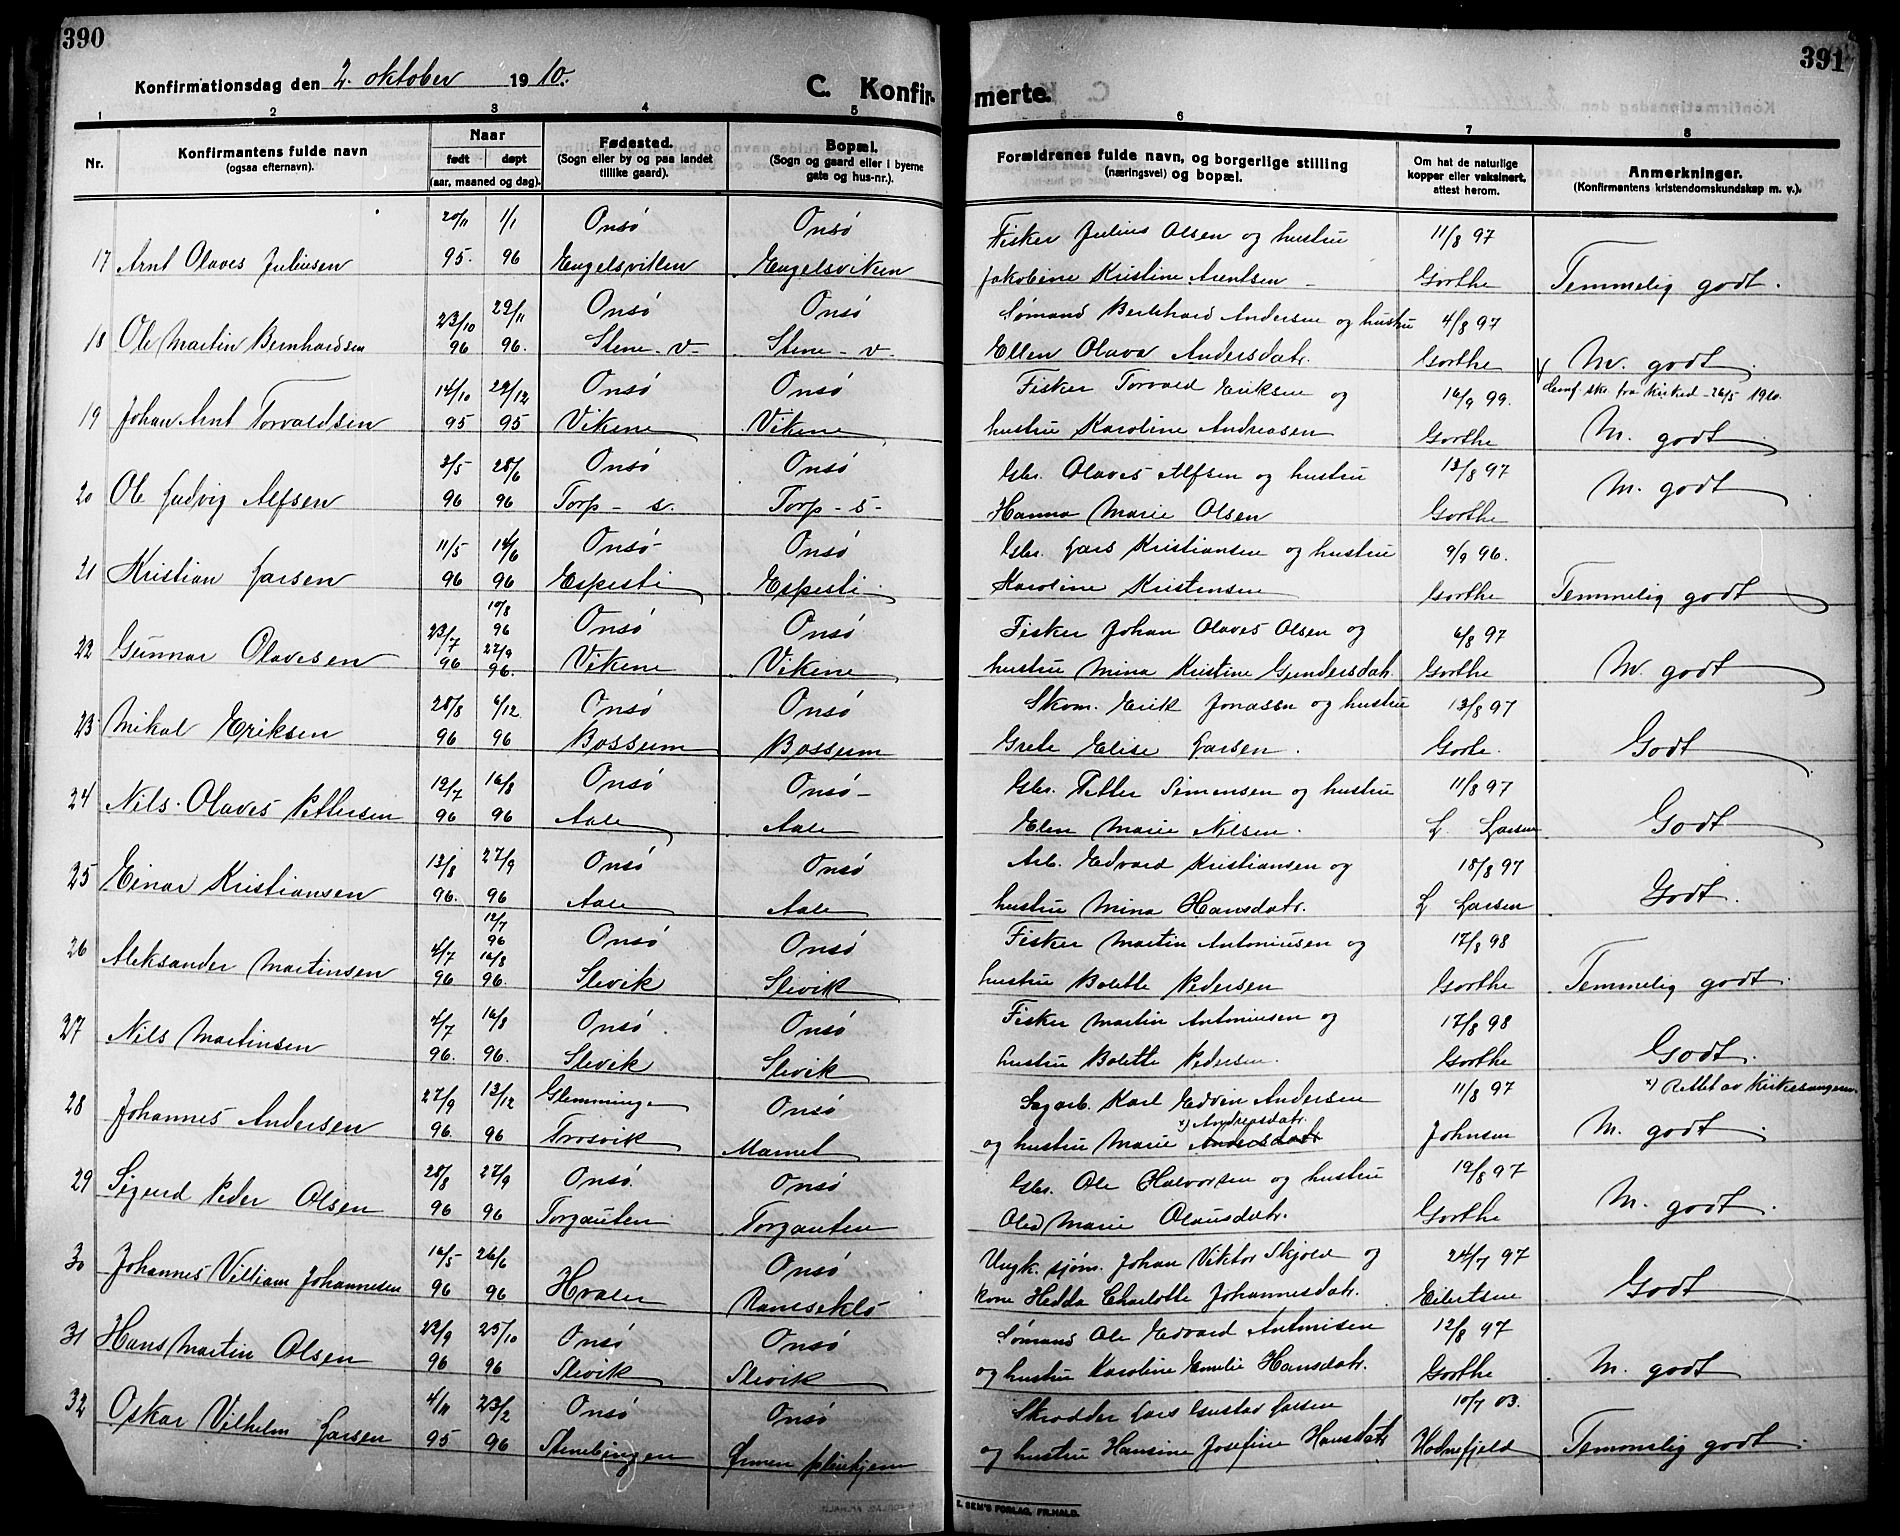 390
391
Konfirmationsdag den 2. oktober 1910.
C. Konfirmerte.
1 2 3 4 5 6 7 8
Nr.
Konfirmantens fulde navn
(ogsaa efternavn).
Naar
født døpt
(aar, maaned og dag).
Fødested.
(Sogn eller by og paa landet
tillike gaard).
Bopæl.
(Sogn og gaard eller i byerne
gate og hus-nr.).
Forældrenes fulde navn, og borgerlige stilling
(næringsvei) og bopæl.
Om hat de naturlige
kopper eller vaksinert,
attest herom.
Anmerkninger.
(Konfirmantens kristendomskundskap m. v.).
20/11 1/1 Onsö Onsö Fisker Julius Olsen og hustru 11/8 97
17 Arnt Olaves Juliusen 95. 96 Engelsviken Engelsviken Jakobine Kristine Arentsen Gorthe Temmelig godt.
23/10 29/11 Onsö Onsö Sømand Bernhard Andersen og hustru 4/8 97
18 Ole Martin Bernhardsen 96 96. Stene - v- Stene - v- Ellen Olava Andersdatr. Gorthe M. godt
14/10 29/12 Onsö Onsö Fisker Torvald Eriksen og 16/9 99. 26/5 1910.
19 Johan Arnt Torvaldsen 95 95 Vikene Vikene hustru Karoline Andreasen Gorthe M. godt
3/5 28/6 Onsö Onsö Gbr. Olaves Alfsen og hustru 13/8 97
20 Ole Ludvig Alfsen 96 96 Torp - s. Torp - s- Hanna Marie Olsen Gorthe M. godt
11/5 14/6 Onsö Onsö Gbr. Lars Kristiansen og hustru 9/9 96.
21 Kristian Larsen 96 96 Elpesti Elpesti Karoline Kristensen Gorthe Temmelig godt
23/7 10/8 96 Onsö Onsö Fisker Johan Olaves Olsen og 6/8 97
22 Gunnar Olavesen 96 27/9 96. Vikene Vikene hustru Mina Kristine Gundersdatr. Gorthe M. godt
28/8 6/12 Onsö Onsö Skom. Erik Jonassen og hustru 13/8 97
23 Mikal Eriksen 96 96 Bossum Bossum Grete Elise Larsen. Gorthe. Godt
12/7 16/8 Onsö Onsö- Gbr. Petter Simensen og hustru 11/8 97
24 Nils Olaves Pettersen 96 96 Aale Aale Elen Marie Nilsen. L. Larsen Godt
13/8 27/9 Onsö Onsö Arb. Edvard Kristiansen og 18/8 97
25 Einar Kristiansen 96. 96 Aale Aale hustru Mina Hansdatr. L Larsen Godt.
4/7 12/7 96 Onsö Onsö Fisker Martin Antoniusen og 17/8 98
26 Aleksander Martinsen 96 16/8 96. Slevik Slevik hustru Bolette Pedersen Gorthe Temmelig godt.
4/7 16/8 Onsö Onsö Fisker Martin Antoniusen og 17/8 98
27 Nils Martinsen 96. 96. Slevik Slevik hustru Bolette Pedersen. Gorthe Godt.
27/9 13/12 Glemminge Onsö Sagarb. Karl Edvin Andersen 11/8 97 x) Rettet av kirkesangeren
x) Andreasdatr.
28 Johannes Andersen 96. 96 Trosvik Mamet og hustru Marie Andersdatr Johnsen M. godt
28/8 27/9 Onsö. Onsö Gbr. Ole Halvorsen og hustru 19/8 97
29 Sigurd Peder Olsen 96 96 Torgauten Torgauten Marie Olausdatr. Gorthe M. godt.
16/5 26/6 Onsö Ungk. sjøm. Johan Viktor Skjold og 24/7 97
30 Johannes Villiam Johannesen 96 96 Hvaler Ramseklo kone Hedda Charlotte Johannesdatr. Eilertsen Godt
22/9 25/10 Onsö Onsö Sømand Ole Edvard Antonisen 12/8 97
31 Hans Martin Olsen 96 96 Slevik Slevik og hustru Karoline Emelie Hansdatr. Gorthe M. godt
4/11 23/2 Onsö Onsö Skrædder Lars Gustav Larsen 10/7 03.
32 Oskar Vilhelm Larsen 95 96 Stenebingen pleiehjem og hustru Hansine Josefine Hansdatr Hodnefjeld Temmelig godt.
E. SEM'S FORLAG, FR.HALD.